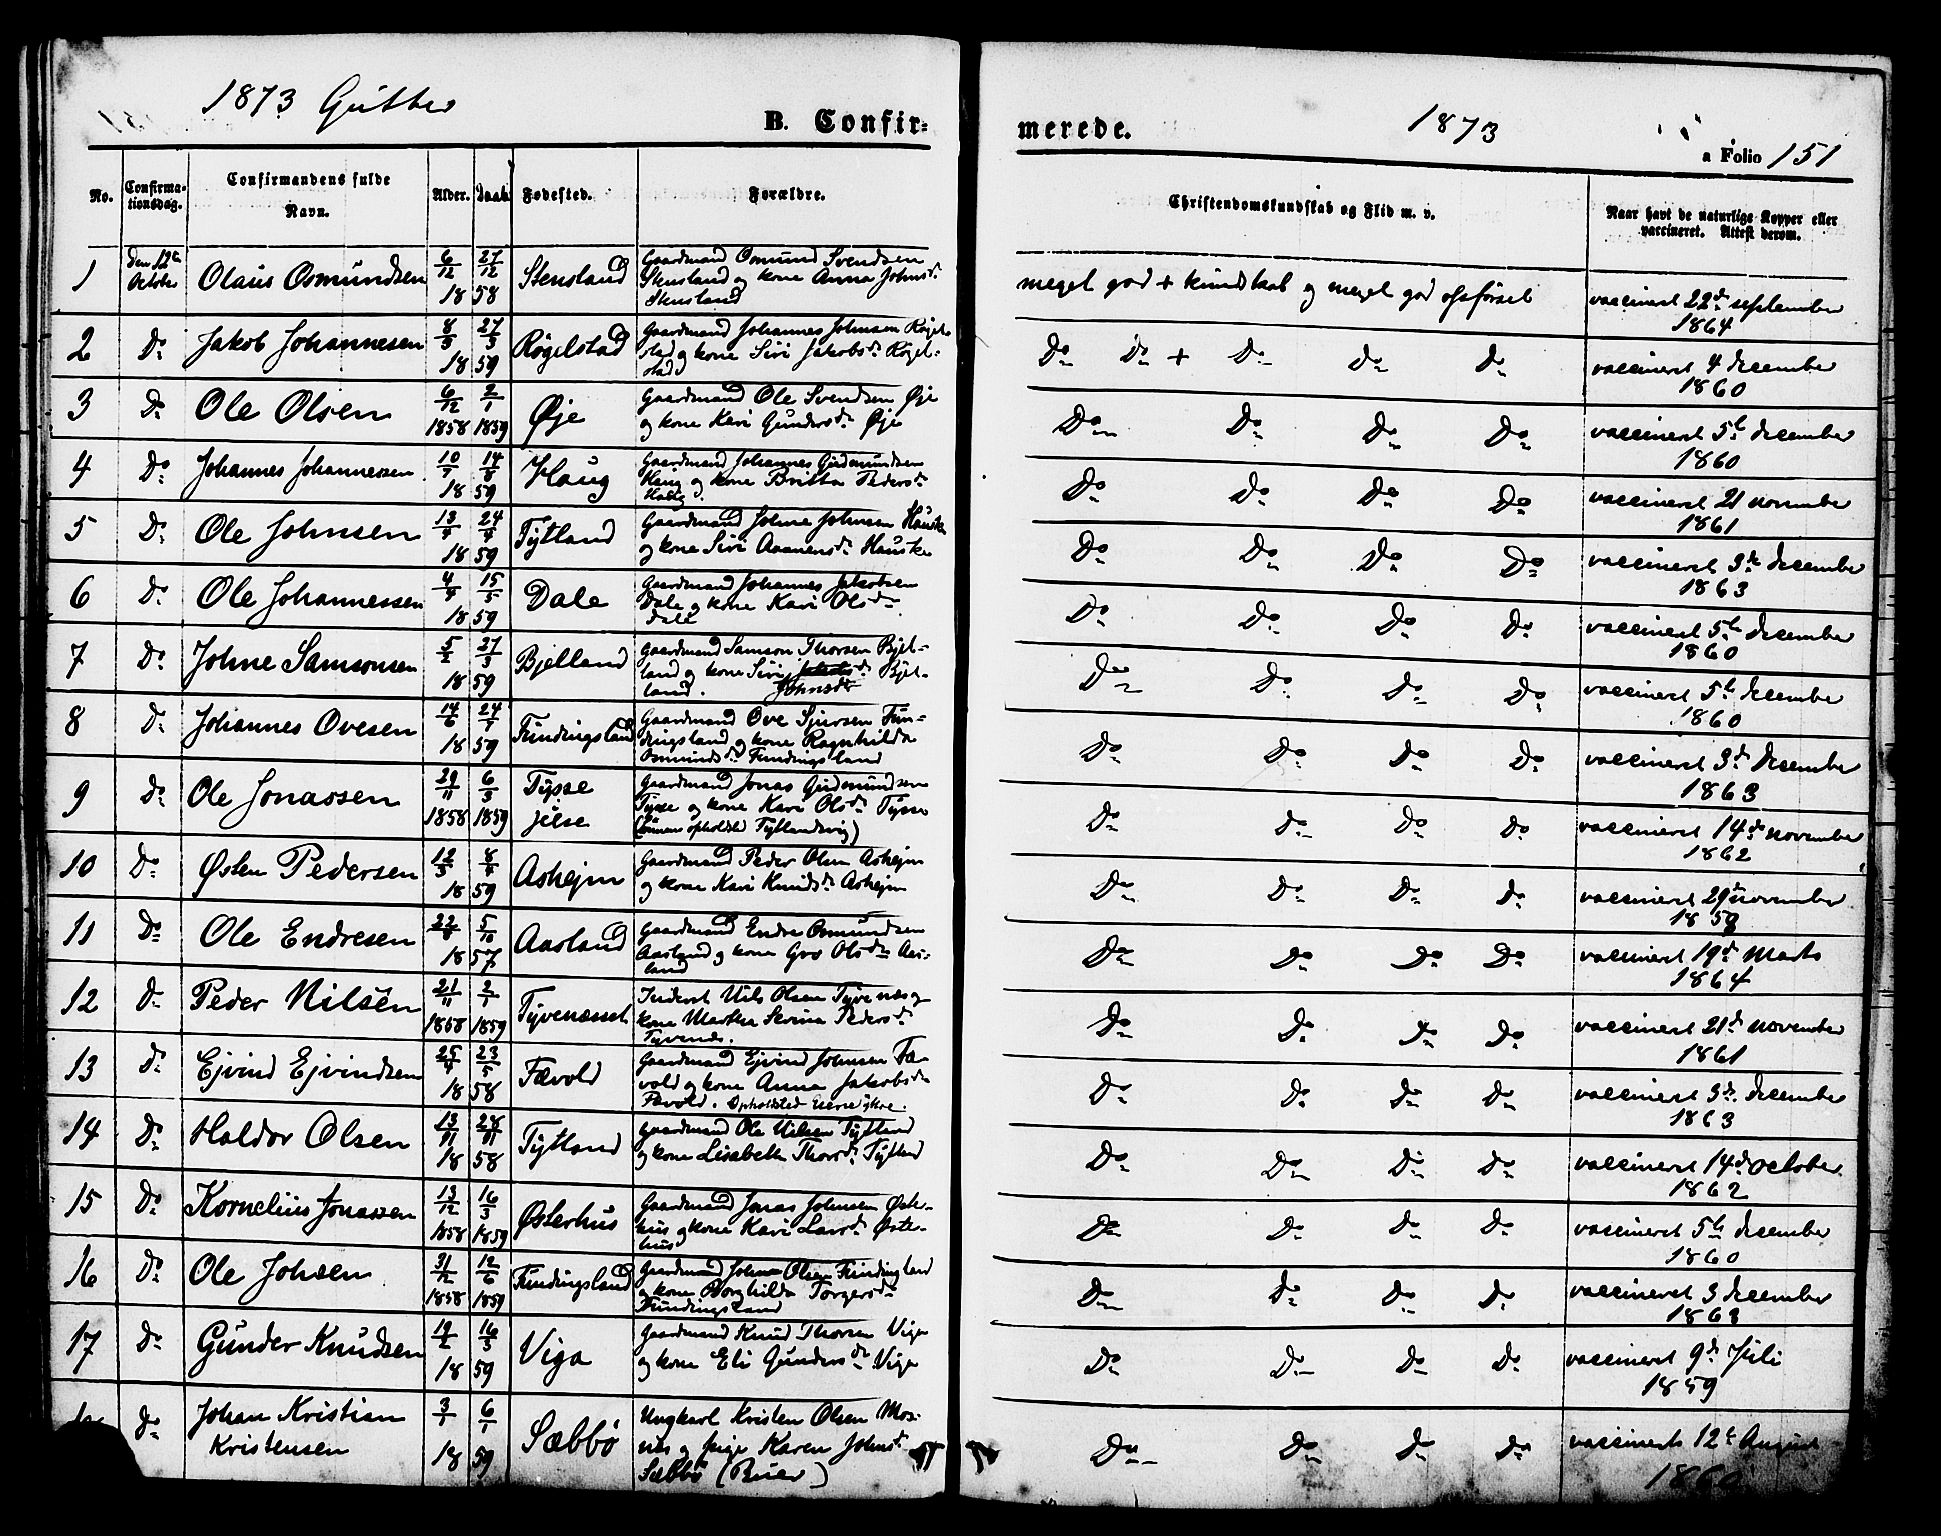 1873 Gutter
B. Confir=
No.
Confirma-
tionsdag.
Confirmandens fulde
Navn.
Alder.
Daab
Fødested.
Forældre.
1 Den 12te October Olaus Osmundsen 6/12 27/12 18 58 Stensland Gaardmand Osmund Svendsen
Stensland og kone Anna Johnsdr
Stensland
2 Do Jakob Johannesen 8/5 27/5 18 59 Røgelstad Gaardmand Johannes Johnsen Røgel-
stad og kone Siri Jakobsdr Røgel-
stad
3 Do Ole Olsen 6/12 1858 2/1 1859 Øje Gaardmand Ole Svendsen Øje
og kone Kari Gundersdr Øje
4 Do Johannes Johannessen 10/7 14/8 18 59 Haug Gaardmand Johannes Gudmundsen
Haug og kone Britta Pedersdr
Haug.
5 Do Ole Johnsen 13/4 24/4 18 59 Tytland Gaardmand Johne Johnsen Hauske
og kone Siri Aanensdr Hauske
6 Do Ole Johannessen 4/4 15/5 18 59 Dale Gaardmand Johannes Jakobsen
Dale og kone Kari Olsdr
Dale
7 Do Johne Samsonsen 5/2 27/3 18 59 Bjelland Gaardmand Samson Thorsen Bjel-
land og kone Siri Jakobsdr Bjel-
land. Johnsdr
8 Do Johannes Ovesen 14/6 24/7 18 59 Fundingsland Gaardmand Ove Sjursen Fun-
dingsland og kone Ragnhilda
Osmundsdr Fundingsland
9 Do Ole Jonassen 29/11 1858 6/3 1859 Tysse jelse Gaardmand Jonas Gudmundsen
Tysse og kone Kari Olsdr Tysse
(Sønnens opholdsted Tytlandsvig)
10 Do Østen Pedersen 12/3 8/4 18 59 Ashejm Gaardmand Peder Olsen Ashejm
og kone Kari Knudsdr Ashejm
11 Do Ole Endresen 22/8 5/10 18 57 Aasland Gaardmand Endre Osmundsen
Aasland og kone Gro Olsdr Aas-
land
12 Do Peder Nilsen 21/11 1858 2/1 1859 Tyvenæset Inderst Nils Olsen Tyvenæs og
kone Martha Serina Pedersdr
Tyvenæs.
13 Do Ejvind Ejvindsen 25/4 23/5 18 58 Fævold Gaardmand Ejvind Johnsen Fæ-
vold og kone Anna Jakobsdr
Fævold. Opholdsted
14 Do Haldor Olsen 13/11 28/11 18 58 Tytland gaardmand Ole Nilsen Tytland
og kone Lisabeth Thorsdr Tytland
15 Do Kornelius Jonassen 13/12 1858 16/3 1859 Østerhus Gaardmand Jonas Johnsen Øster-
hus og kone Kari Larsdr Øster-
hus
16 Do Ole Johnsen 31/12 1858 12/6 1859 Fundingsland Gaardmand Johne Olsen Fundingsland
og kone Borghilda Torgersdr
Fundingsland
17 Do Gunder Knudsen 19/2 16/3 18 59 Viga Gaardmand Knud Thorsen Viga
og kone Eli Gundersdr Viga
Do Johan Kristian Kristensen 3/1 6/1 18 59 Sæbbø Ungkarl Kristen Olsen Mos-
næs og pige Karen Johnsdr
Sæbbø (Buer)
merede.
1873
a Folio 151
Christendomskundskab og Flid m. v.
Naar havt de naturlige Kopper eller
vaccineret. Attest derom.
meget god + kundskab og meget god opførsel vaccineret 22de september
1864
Do Do + Do Do Do vaccineret 4 december
1860
Do Do Do Do vaccineret 5te december
1860
Do Do Do Do vaccineret 21 november
1861
Do Do Do Do vaccineret 3de december
1863
Do Do Do Do vaccineret 5te december
1860
Do Do Do Do vaccineret 5te december
1860
Do Do Do Do vaccineret 3de december
1863
Do Do Do Do vaccineret 14de november
1862
Do Do Do Do vaccineret 29de november
1859
Do Do Do Do vaccineret 19de Marts
1864
Do Do Do Do vaccineret 21de november
1861
Do Do Do Do vaccineret 3de december
1863
Do Do Do Do vaccineret 14de october
1862
Do Do Do Do vaccineret 5te december
1860
Do Do Do Do vaccineret 3 december
1863
Do Do Do Do vaccineret 9de Juli
1859
Do Do Do Do vaccineret 12te August
1860